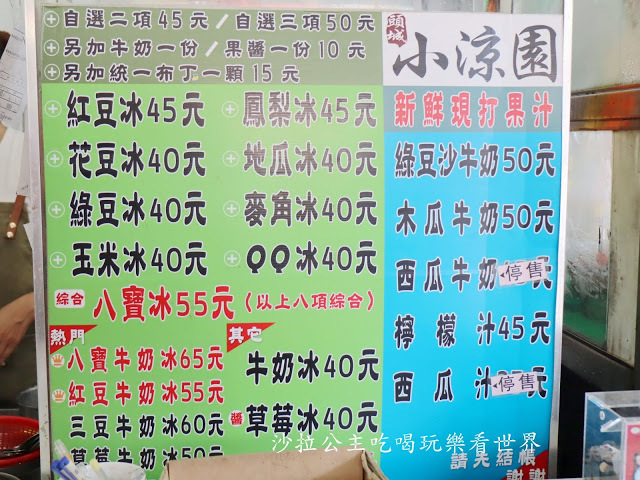 自選二項45元/自選三項50元
另加牛奶一份/果醬一份10元
另加統一布丁一顆15元
頭城
小涼園
紅豆冰45元
鳳梨冰45元
花豆冰40元
地瓜冰40元
綠豆冰40元
麥角冰40元
玉米冰40元
QQ冰40元
綜合 八寶冰55元(以上八項綜合)
熱門
八寶牛奶冰65元
紅豆牛奶冰55元
三豆牛奶冰60元
草莓牛奶冰50元
其它
牛奶冰40元
醬 草莓冰40元
新鮮現打果汁
綠豆沙牛奶50元
木瓜牛奶50元
西瓜牛奶 停售 元
檸檬汁45元
西瓜汁 停售 元
請先結帳
謝謝
沙拉公主吃喝玩樂看世界